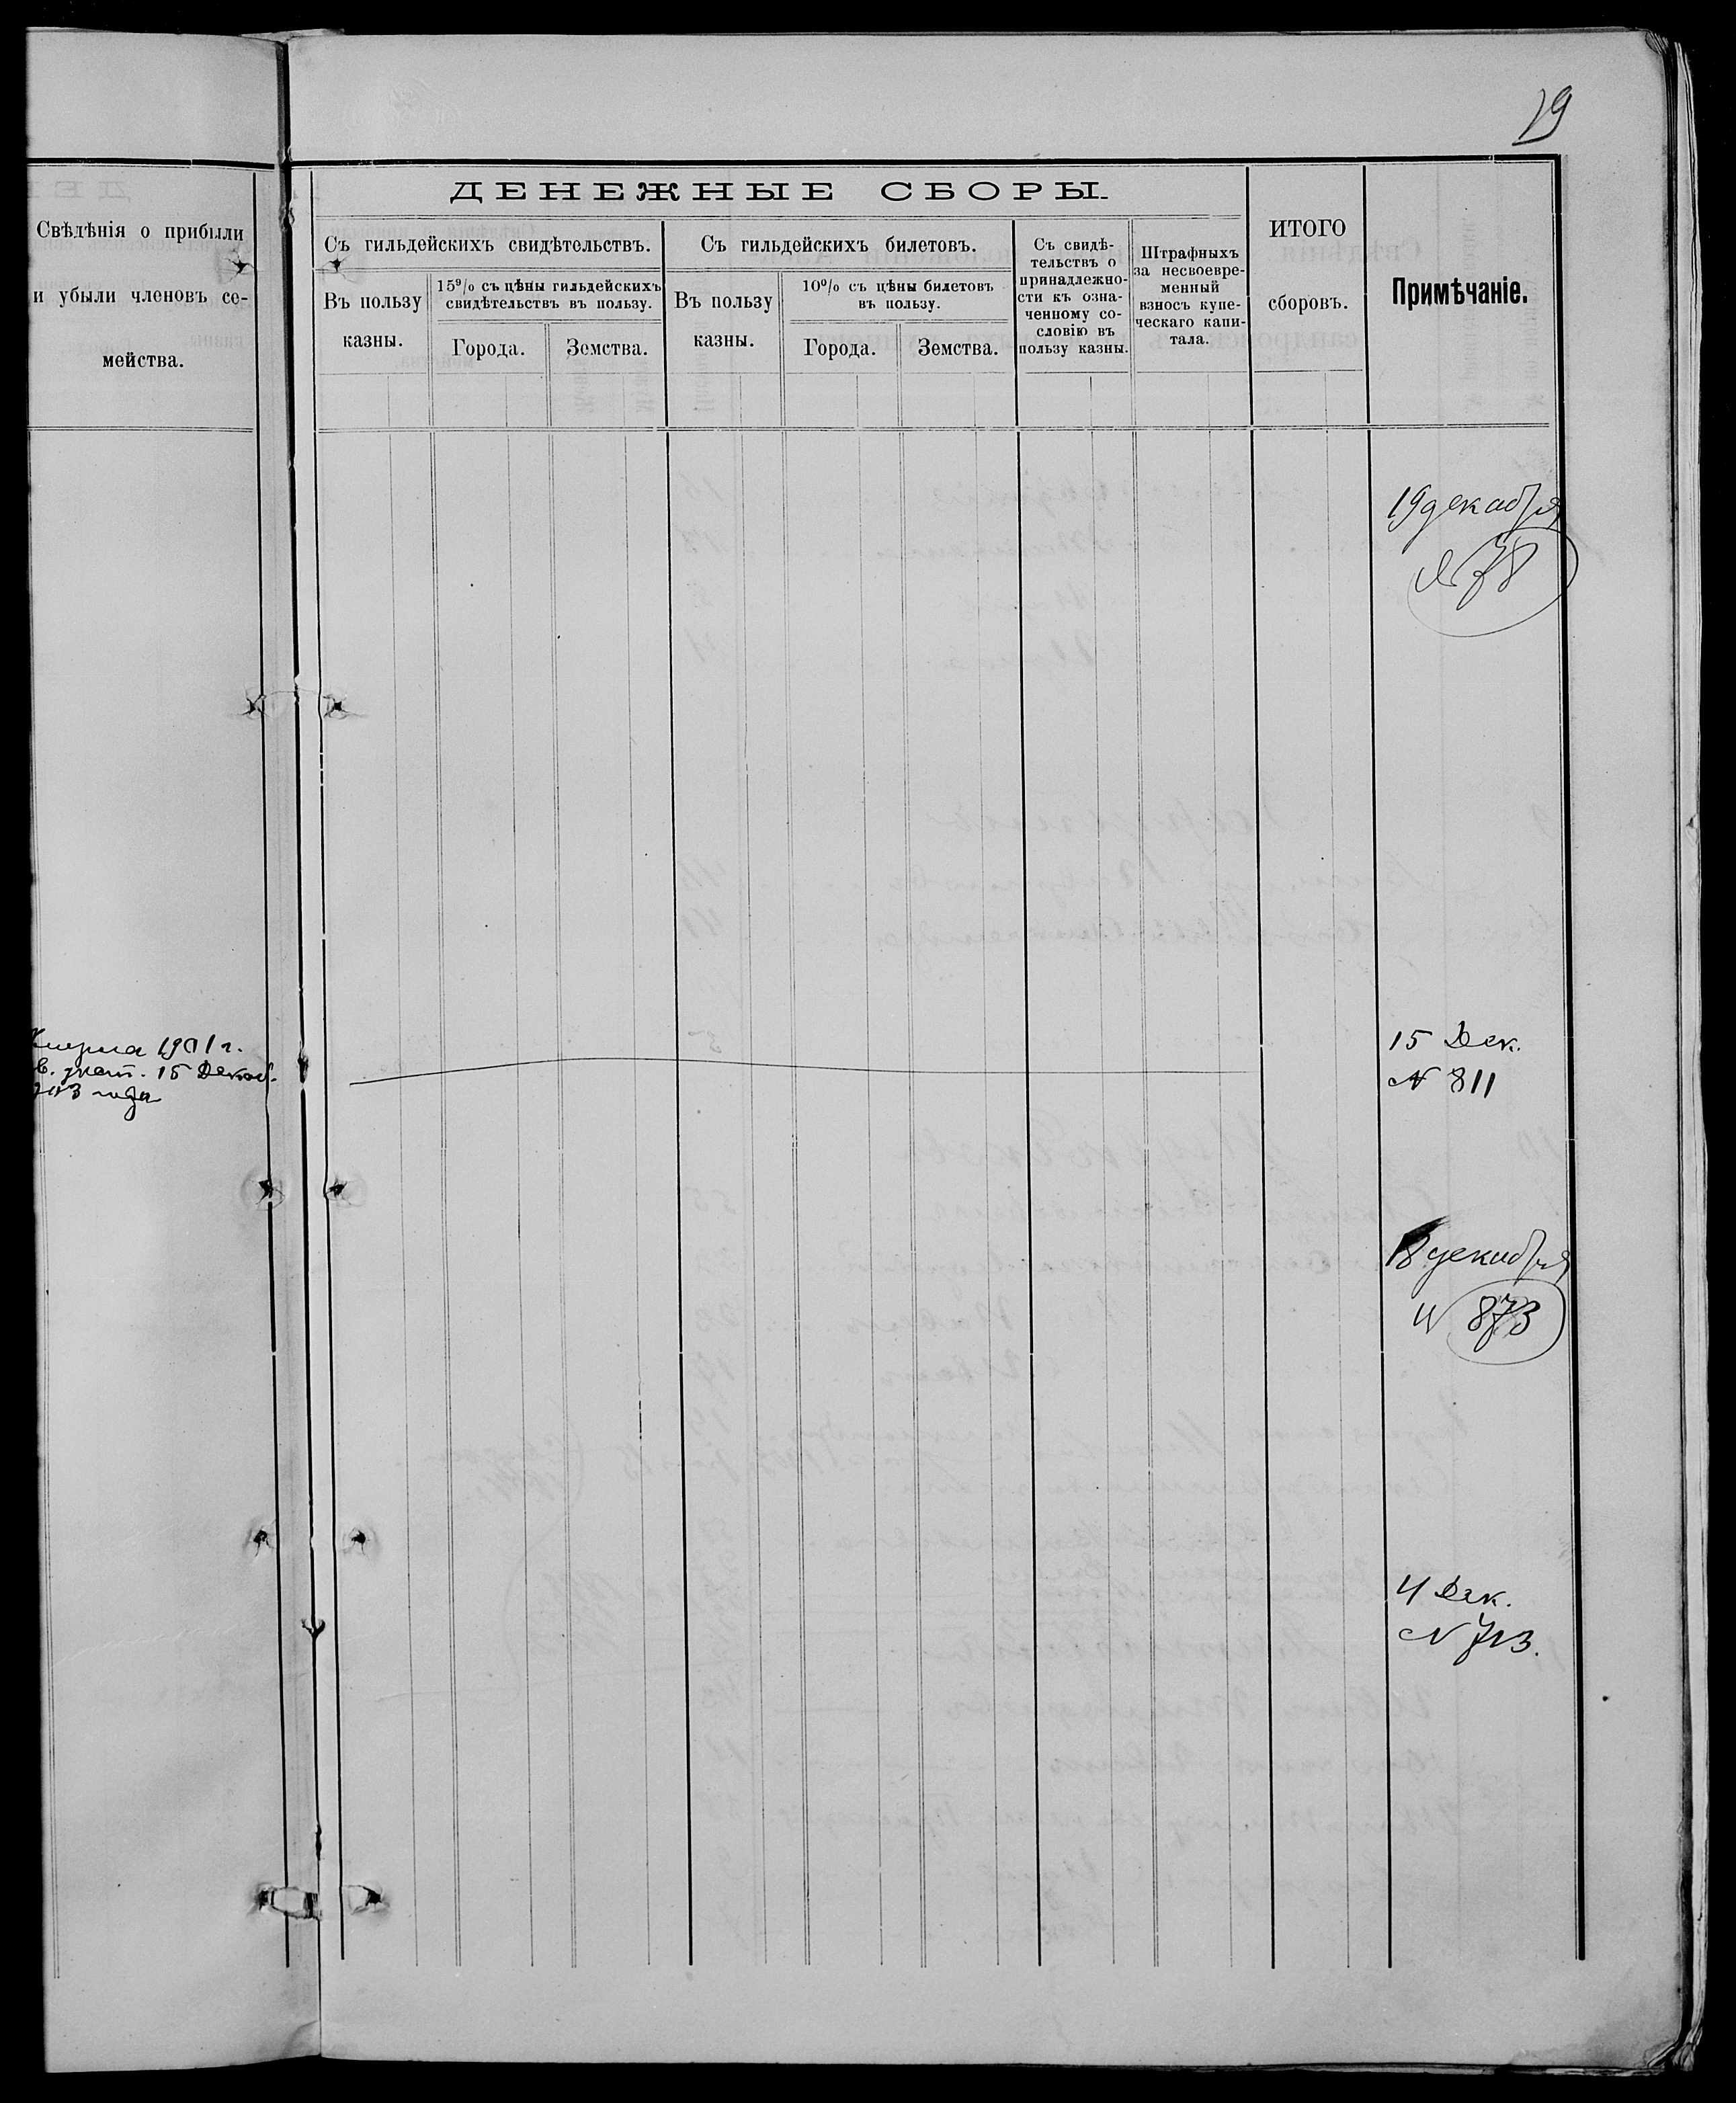 19
Свѣдѣнія о прибыли
и убыли членовъ се-
мейства.
ДЕНЕЖНЫЕ СБОРЫ.
Съ гильдейскихъ свидѣтельствъ.
Въ пользу
казны.
15% съ цѣны гильдейскихъ
свидѣтельствъ въ пользу.
Города.
Земства.
Съ гильдейскихъ билетовъ.
Въ пользу
казны.
10% съ цѣны билетовъ
въ пользу.
Города.
Земства.
Съ свидѣ-
тельствъ о
принадлежно-
сти къ озна-
ченному со-
словію въ
пользу казны.
Штрафныхъ
за несвоевре-
менный
взносъ купе-
ческаго капи-
тала.
ИТОГО
сборовъ.
Примѣчаніе.
19 декабря
№ 78
1901 г.
15 Декаб.
года
15 Дек.
№ 811
18 декабря
№ 873
4 Дек.
№ 713.